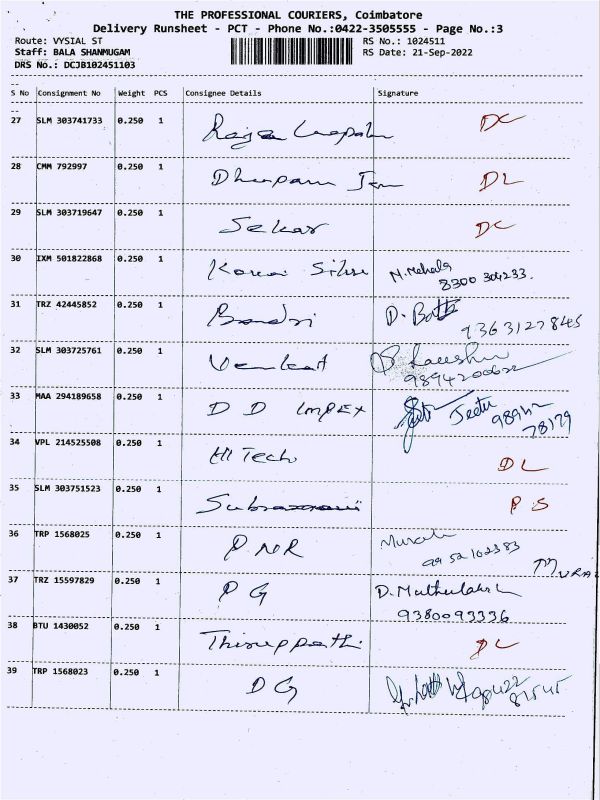 THE PROFESSIONAL COURIERS, Coimbatore
Delivery Runsheet - PCT - Phone No.:0422-3505555 - Page No.:3
Route: VYSIAL ST RS No.: 1024511
Staff: BALA SHANMUGAM RS Date: 21-Sep-2022
DRS No.: DCJB102451103
S No Consignment No Weight PCS Consignee Details Signature
27 SLM 303741733 0.250 1 DC
28 CMM 792997 0.250 1 DL
29 SLM 303719647 0.250 1 Sekar DC
30 IXM 501822868 0.250 1 N. Mehala
8300 304233.
31 TRZ 42445852 0.250 1 D.
9363127845
32 SLM 303725761 0.250 1 Venkat
33 MAA 294189658 0.250 1 D D IMPEX Jeetu
78179
34 VPL 214525508 0.250 1 Hi Tech DL
35 SLM 303751523 0.250 1 PS
36 TRP 1568025 0.250 1 P NR Murali
9952102383
MURALI
37 TRZ 15597829 0.250 1 P G D. Muthulaksh
9380093336
38 BTU 1430052 0.250 1 Thiruppathi DL
39 TRP 1568023 0.250 1 D G